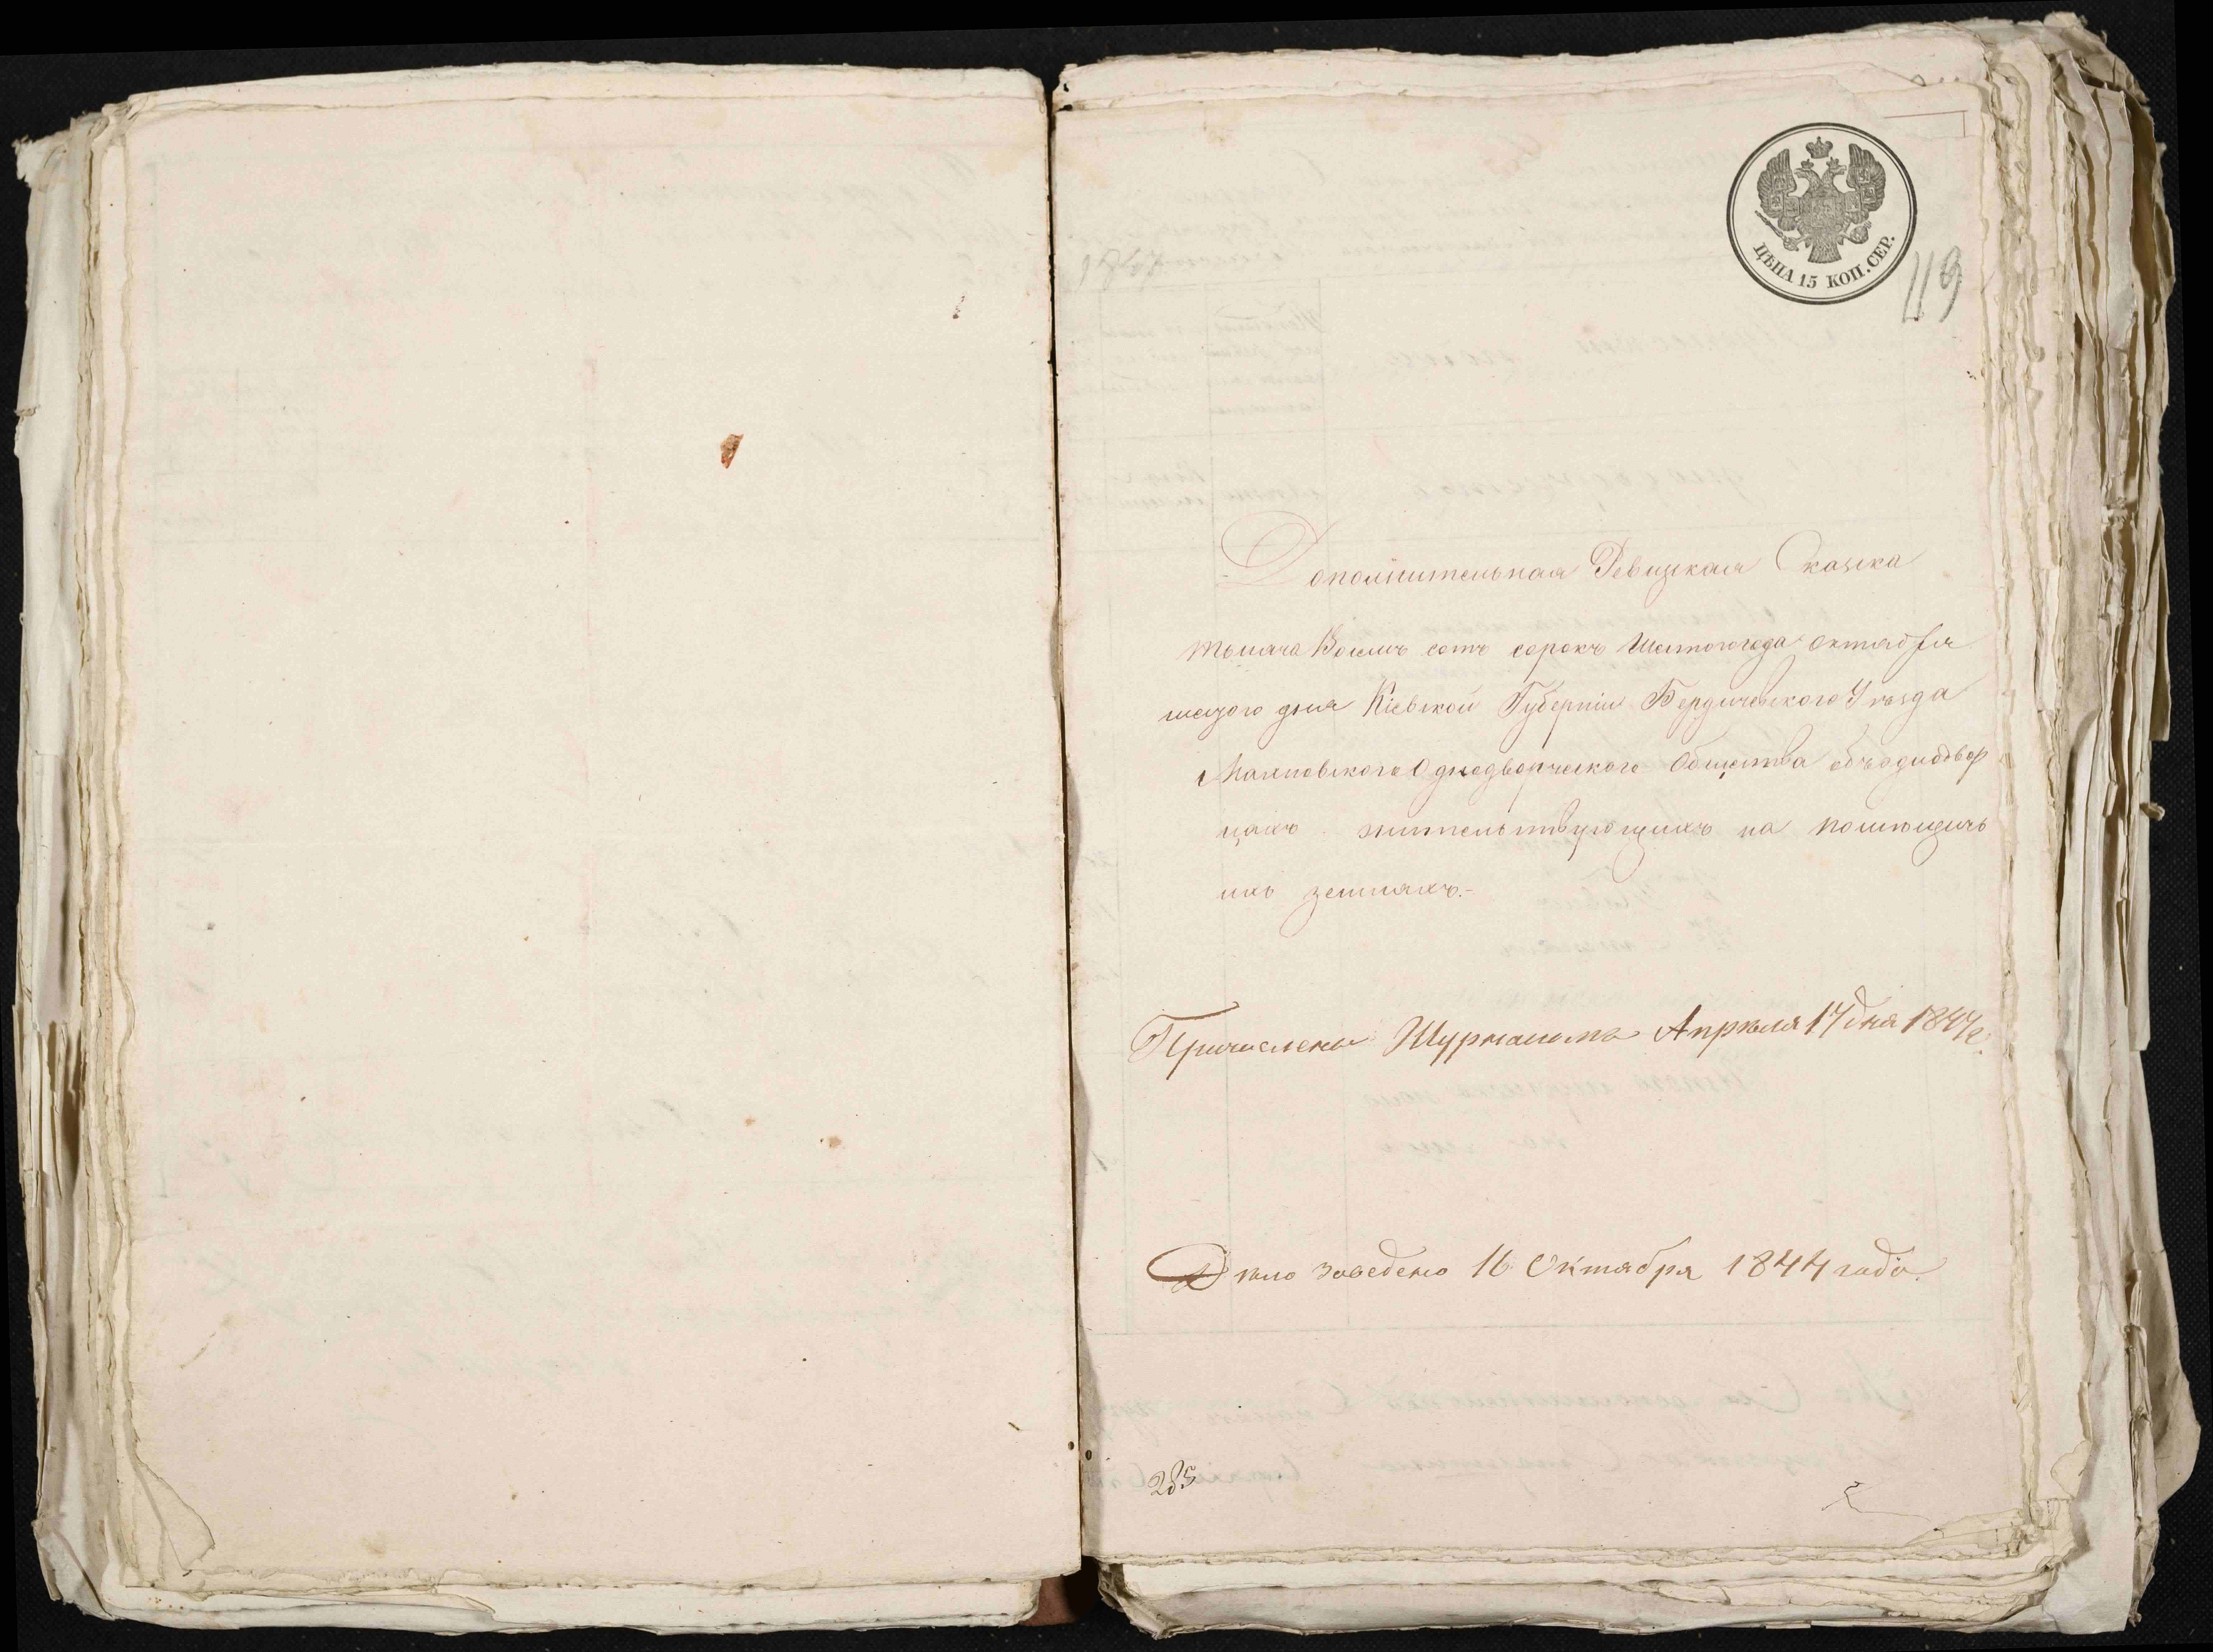 ЦѢНА 15 КОП. СЕР.
119
Дополнительная Ревизкая Сказка
тысяча Восемь сотъ сорокъ Шестого года октября
дня Кіевской Губерніи Бердичевского Уѣзда
Махновского Однодворческого Общества объ однодвор
цахъ жительствующихъ на помѣщичь
ихъ земляхъ.-
Причислены Журналомъ Апрѣля 17 дня 1847 г.
Дѣло заведено 16 Октября 1844 года.
285